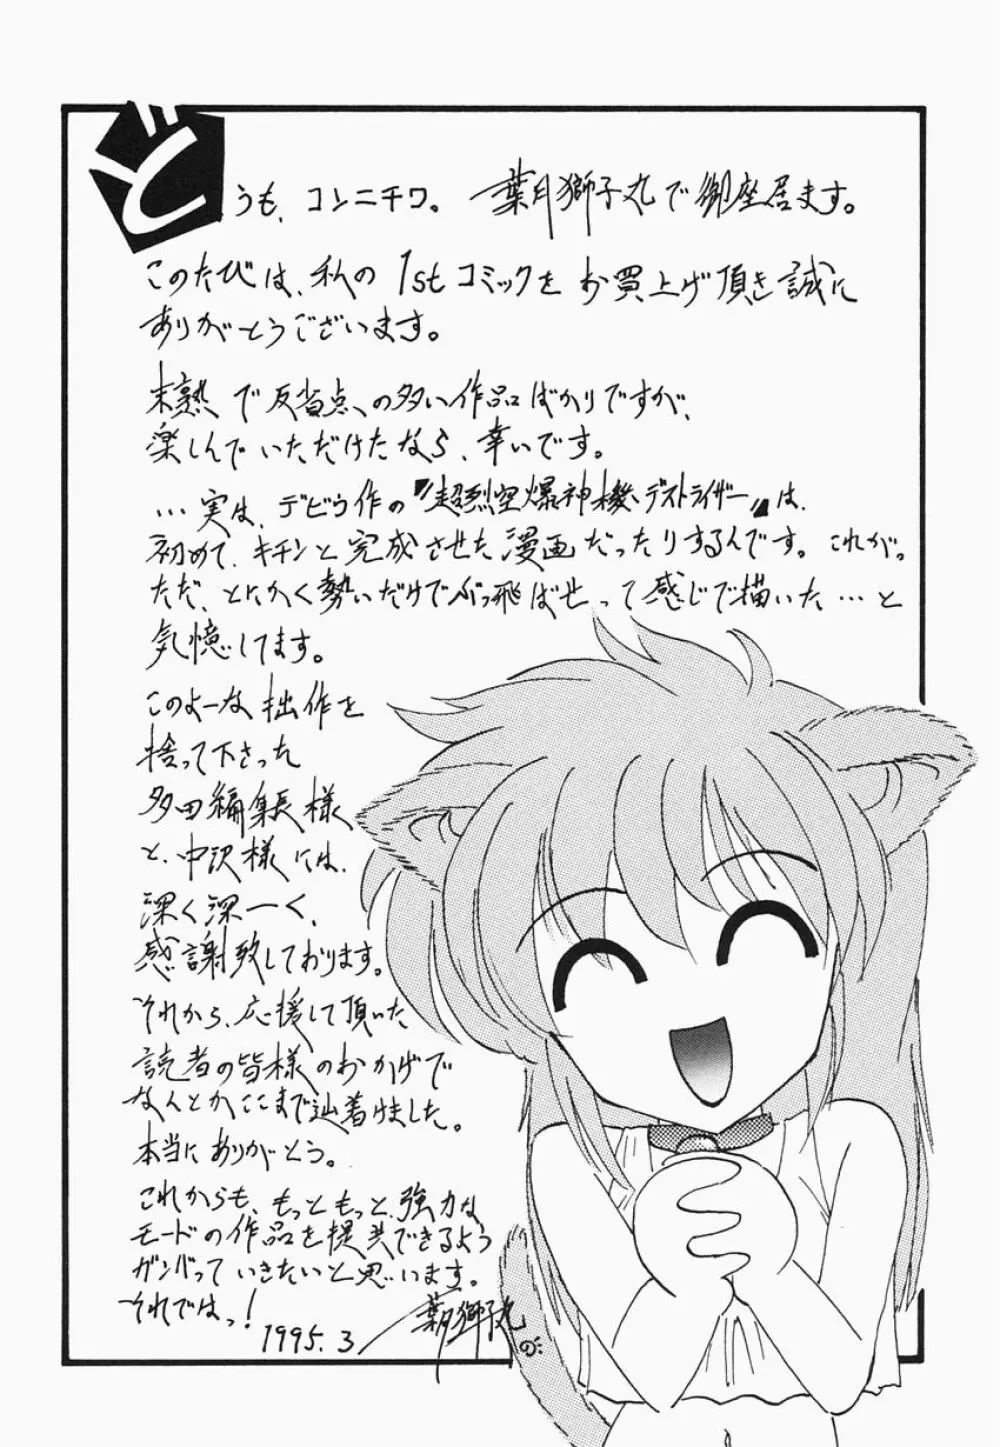 どうも、コンニチワ。 葉月獅子丸で御座居ます。
このたびは、私の1stコミックをお買上げ頂き誠に
ありがとうございます。
未熟で反省点の多い作品ばかりですが、
楽しんでいただけたなら、幸いです。
…実は、デビウ作の『超烈空爆神機デストライザー』は、
初めて、キチンと完成させた漫画だったりするんです。これが。
ただ、とにかく勢いだけでぶっ飛ばせって感じで描いた…と
気憶してます。
このよーな拙作を
捨って下さった
多田編集長様
と、中沢様には、
深く深ーく、
感謝致しております。
それから、応援して頂いた、
読者の皆様のおかげで
なんとかここまで辿着けました。
本当にありがとう。
これからも、もっともっと強力な
モードの作品を提供できるよう
ガンバっていきたいと思います。
それではっ!
1995.3 葉月獅子丸